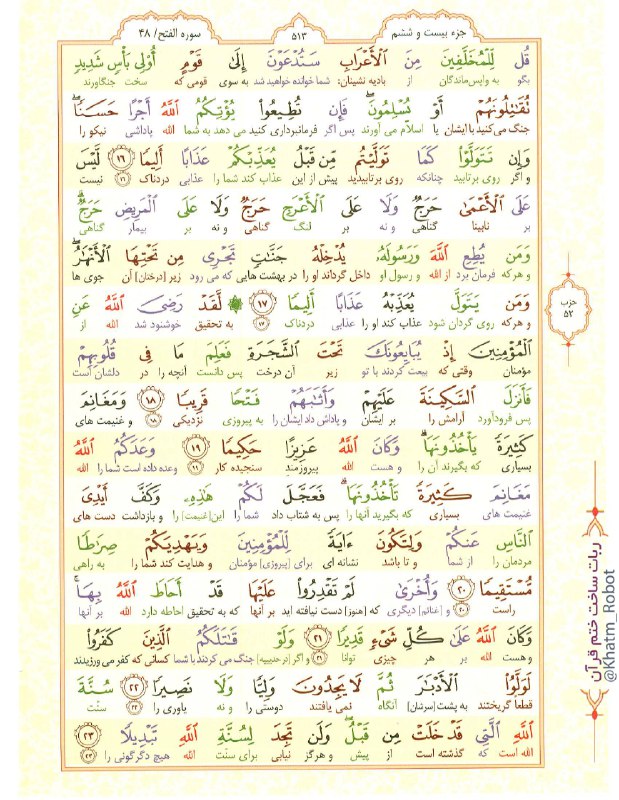 سوره الفتح/ ۴۸
۵۱۳
جزء بیست و ششم
قُل لِّلْمُخَلَّفِينَ مِنَ الْأَعْرَابِ سَتُدْعَوْنَ إِلَىٰ قَوْمٍ أُوْلِى بَأْسٍ شَدِيدٍ
بگو به واپس‌ماندگان از بادیه نشینان: شما خوانده خواهید شد به سوی قومی که سخت جنگاورند
تُقَٰتِلُونَهُمْ أَوْ يُسْلِمُونَ ۖ فَإِن تُطِيعُوا۟ يُؤْتِكُمُ اللَّهُ أَجْرًا حَسَنًا ۖ
جنگ می‌کنید با ایشان یا اسلام می آورند پس اگر فرمانبرداری کنید می دهد به شما الله پاداشی نیکو را
وَإِن تَتَوَلَّوْا۟ كَمَا تَوَلَّيْتُم مِّن قَبْلُ يُعَذِّبْكُمْ عَذَابًا أَلِيمًا ﴿١٦﴾ لَّيْسَ
و اگر روی برتابید چنانکه روی برتابیدید پیش از این عذاب کند شما را عذابی دردناک ﴿۱۶﴾ نیست
عَلَى الْأَعْمَىٰ حَرَجٌ وَلَا عَلَى الْأَعْرَجِ حَرَجٌ وَلَا عَلَى الْمَرِيضِ حَرَجٌ ۗ
بر نابینا گناهی و نه بر لنگ گناهی و نه بر بیمار گناهی
وَمَن يُطِعِ اللَّهَ وَرَسُولَهُۥ يُدْخِلْهُ جَنَّٰتٍ تَجْرِى مِن تَحْتِهَا الْأَنْهَٰرُ ۖ
و هرکه فرمان برد از الله و رسول او داخل گرداند او را در بهشت هایی که می رود زیر [درختان] آن جوی ها
وَمَن يَتَوَلَّ يُعَذِّبْهُ عَذَابًا أَلِيمًا ﴿١٧﴾ ۞ لَّقَدْ رَضِىَ اللَّهُ عَنِ
و هرکه روی گردان شود عذاب کند او را عذابی دردناک ﴿۱۷﴾ به تحقیق خوشنود شد الله از
الْمُؤْمِنِينَ إِذْ يُبَايِعُونَكَ تَحْتَ الشَّجَرَةِ فَعَلِمَ مَا فِى قُلُوبِهِمْ
مؤمنان وقتی که بیعت کردند با تو زیر آن درخت پس دانست آنچه را در دلشان است
فَأَنزَلَ السَّكِينَةَ عَلَيْهِمْ وَأَثَٰبَهُمْ فَتْحًا قَرِيبًا ﴿١٨﴾ وَمَغَانِمَ
پس فرودآورد آرامش را بر ایشان و پاداش داد ایشان را به پیروزی نزدیکی ﴿۱۸﴾ و غنیمت های
كَثِيرَةً يَأْخُذُونَهَا ۗ وَكَانَ اللَّهُ عَزِيزًا حَكِيمًا ﴿١٩﴾ وَعَدَكُمُ اللَّهُ
بسیاری که بگیرند آن را و هست الله پیروزمند سنجیده کار ﴿۱۹﴾ وعده داده است شما را الله
مَغَانِمَ كَثِيرَةً تَأْخُذُونَهَا فَعَجَّلَ لَكُمْ هَٰذِهِۦ وَكَفَّ أَيْدِىَ
غنیمت های بسیاری که بگیرید آنها را پس به شتاب داد شما را این [غنیمت] را و بازداشت دست های
النَّاسِ عَنكُمْ وَلِتَكُونَ ءَايَةً لِّلْمُؤْمِنِينَ وَيَهْدِيَكُمْ صِرَٰطًا
مردمان را از شما و تا باشد نشانه ای برای [پیروزی] مؤمنان و هدایت کند شما را به راهی
مُّسْتَقِيمًا ﴿٢٠﴾ وَأُخْرَىٰ لَمْ تَقْدِرُوا۟ عَلَيْهَا قَدْ أَحَاطَ اللَّهُ بِهَا ۚ
راست ﴿۲۰﴾ و [غنائم] دیگری که [هنوز] دست نیافته اید بر آنها که به تحقیق احاطه دارد الله بر آنها
وَكَانَ اللَّهُ عَلَىٰ كُلِّ شَىْءٍ قَدِيرًا ﴿٢١﴾ وَلَوْ قَٰتَلَكُمُ الَّذِينَ كَفَرُوا۟
و هست الله بر هر چیزی توانا ﴿۲۱﴾ و اگر [در حدیبیه] جنگ می کردند با شما کسانی که کفر می ورزیدند
لَوَلَّوُا۟ الْأَدْبَٰرَ ثُمَّ لَا يَجِدُونَ وَلِيًّا وَلَا نَصِيرًا ﴿٢٢﴾ سُنَّةَ
قطعا گریختند به پشت [سرشان] آنگاه نمی یافتند دوستی را و نه یاوری را ﴿۲۲﴾ سنّت
اللَّهِ الَّتِى قَدْ خَلَتْ مِن قَبْلُ ۖ وَلَن تَجِدَ لِسُنَّةِ اللَّهِ تَبْدِيلًا ﴿٢٣﴾
الله است که گذشته است از پیش و هرگز نیابی برای سنّت الله هیچ دگرگونی را ﴿۲۳﴾
حزب
۵۲
ربات ساخت ختم قرآن
@Khatm_Robot